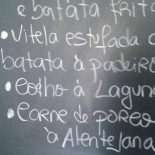 e batata frita
• Vitela estufada c
batata à padeiro
• Coelho à Lagun
• Carne de porco
à Alentejana